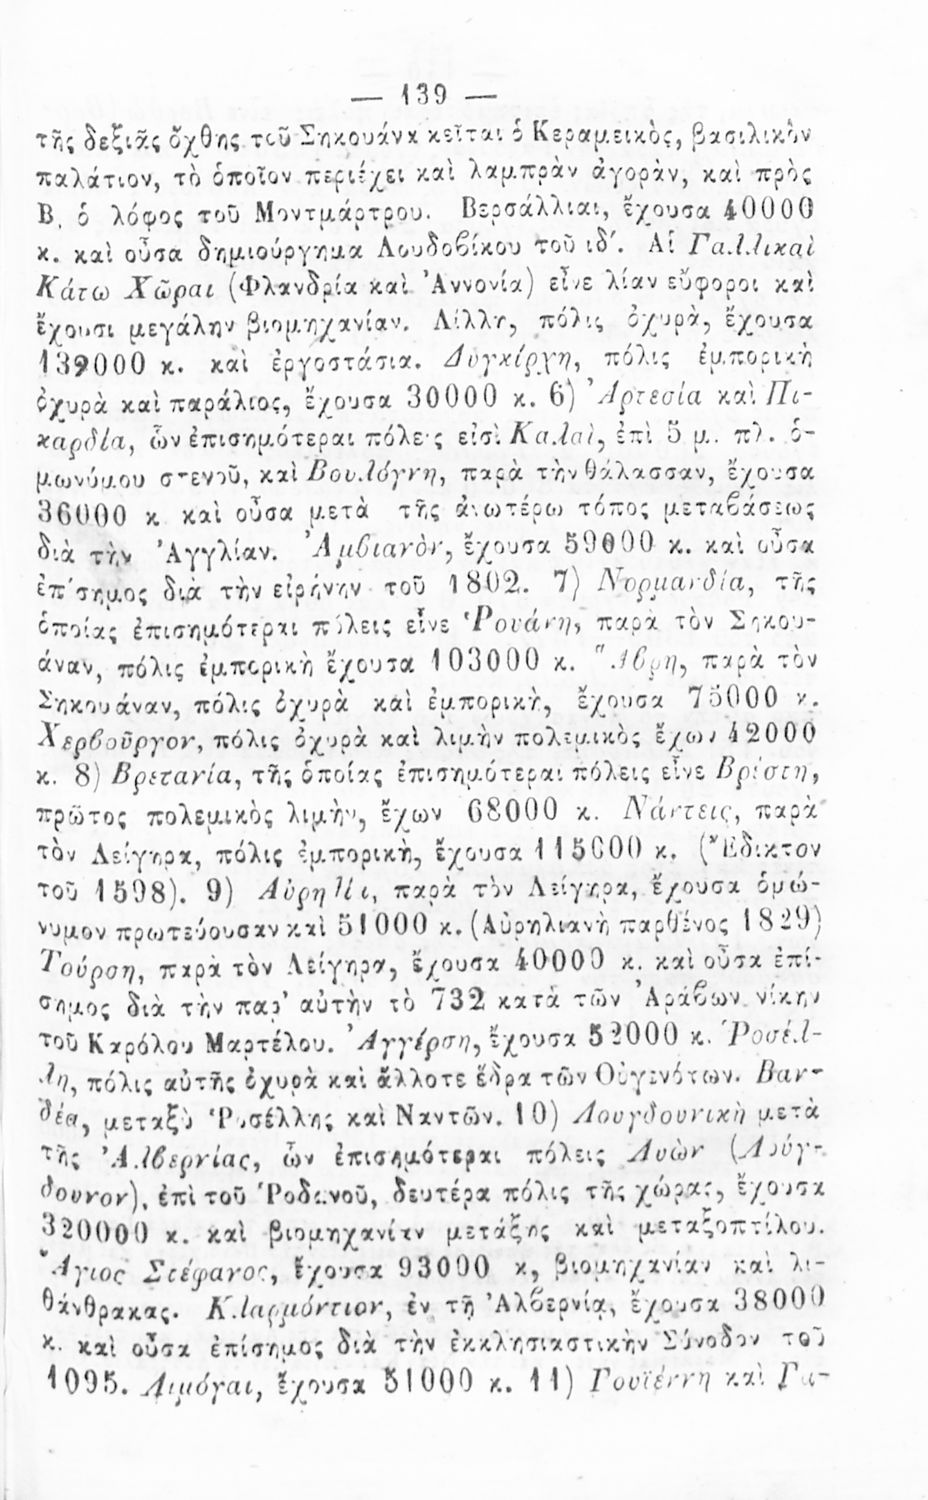 — 139 —
τῆς δεξιᾶς ὄχθης τοῦ Σηκουάνα κεῖται ὁ Κεραμεικὸς, βασιλικὸν
παλάτιον, τὸ ὁποῖον περιέχει καὶ λαμπρὰν ἀγορὰν, καὶ πρὸς
Β. ὁ λόφος τοῦ Μοντμάρτρου. Βερσάλλιαι, ἔχουσα 40000
κ. καὶ οὖσα δημιούργημα Λουδοβίκου τοῦ ιδʹ. Αἱ Γαλλικαὶ
Κάτω Χῶραι (Φλανδρία καὶ Ἀννονία) εἶνε λίαν εὔφοροι καὶ
ἔχουσι μεγάλην βιομηχανίαν. Λίλλη, πόλις ὀχυρὰ, ἔχουσα
139000 κ. καὶ ἐργοστάσια. Δυγκίρχη, πόλις ἐμπορικὴ
ὀχυρὰ καὶ παράλιος, ἔχουσα 30000 κ. 6) Ἀρτεσία καὶ Πι-
καρδία, ὧν ἐπισημότεραι πόλεις εἰσὶ Καλαὶ, ἐπὶ 5 μ. πλ. ὁ-
μωνύμου στενοῦ, καὶ Βουλόγνη, παρὰ τὴν θάλασσαν, ἔχουσα
36000 κ καὶ οὖσα μετὰ τῆς ἀνωτέρω τόπος μεταβάσεως
διὰ τὴν Ἀγγλίαν. Ἀμβιανὸν, ἔχουσα 59000 κ. καὶ οὖσα
ἐπίσημος διὰ τὴν εἰρήνην τοῦ 1802. 7) Νορμανδία, τῆς
ὁποίας ἐπισημότεραι πόλεις εἶνε Ῥουάνη, παρὰ τὸν Σηκου-
άναν, πόλις ἐμπορικὴ ἔχουσα 103000 κ. Ἅβρη, παρὰ τὸν
Σηκουάναν, πόλις ὀχυρὰ καὶ ἐμπορικὴ, ἔχουσα 75000 κ.
Χερβοῦργον, πόλις ὀχυρὰ καὶ λιμὴν πολεμικὸς ἔχων 42000
κ. 8) Βρετανία, τῆς ὁποίας ἐπισημότεραι πόλεις εἶνε Βρέστη,
πρῶτος πολεμικὸς λιμὴν, ἔχων 68000 κ. Νάντεις, παρὰ
τὸν Λείγηρα, πόλις ἐμπορικὴ, ἔχουσα 115000 κ. (Ἔδικτον
τοῦ 1598). 9) Αὐρηλία, παρὰ τὸν Λείγηρα, ἔχουσα ὁμώ-
νυμον πρωτεύουσαν καὶ 51000 κ. (Αὐρηλιανὴ παρθένος 1829)
Τούρση, παρὰ τὸν Λείγηρα, ἔχουσα 40000 κ. καὶ οὖσα ἐπί-
σημος διὰ τὴν παρ' αὐτὴν τὸ 732 κατὰ τῶν Ἀράβων νίκην
τοῦ Καρόλου Μαρτέλου. Ἀγγέρση, ἔχουσα 52000 κ. Ῥοσέλ-
λη, πόλις αὐτῆς ὀχυρὰ καὶ ἄλλοτε ἕδρα τῶν Οὑγενότων. Βαν-
δέα, μεταξὺ Ῥοσέλλης καὶ Ναντῶν. 10) Λουγδουνικὴ μετὰ
τῆς Ἀλβερνίας, ὧν ἐπισημότεραι πόλεις Λυὼν (Λούγ-
δουνον), ἐπὶ τοῦ Ῥοδανοῦ, δευτέρα πόλις τῆς χώρας, ἔχουσα
320000 κ. καὶ βιομηχανίαν μετάξης καὶ μεταξοπτίλου.
Ἅγιος Στέφανος, ἔχουσα 93000 κ, βιομηχανίαν καὶ λι-
θάνθρακας. Κλαρμόντιον, ἐν τῇ Ἀλβερνίᾳ, ἔχουσα 38000
κ. καὶ οὖσα ἐπίσημος διὰ τὴν ἐκκλησιαστικὴν Σύνοδον τοῦ
1095. Λιμόγαι, ἔχουσα 51000 κ. 11) Γουϊέννη καὶ Γα-